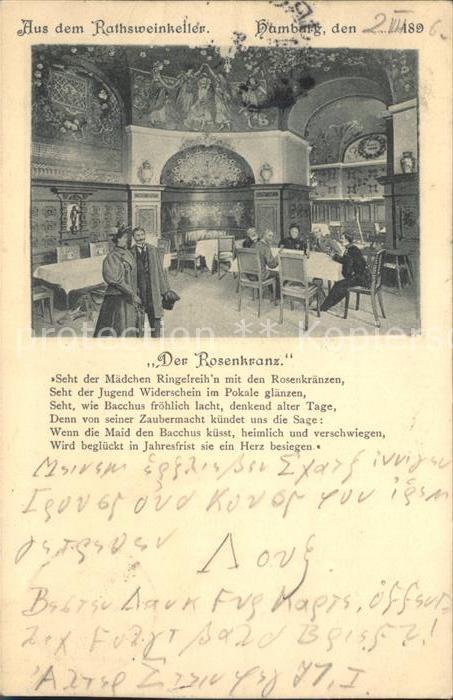 Aus dem Rathsweinkeller. Hamburg, den 2 VII 1896.
„Der Rosenkranz."
»Seht der Mädchen Ringelreih'n mit den Rosenkränzen,
Seht der Jugend Widerschein im Pokale glänzen,
Seht, wie Bacchus fröhlich lacht, denkend alter Tage,
Denn von seiner Zaubermacht kündet uns die Sage:
Wenn die Maid den Bacchus küsst, heimlich und verschwiegen,
Wird beglückt in Jahresfrist sie ein Herz besiegen.«
Μεινεμ Σχατζ ιννιγεν
ουνδ ἱρεμ
Βεστεν Δανκ Καρτε,
βαλδ !
Ἀλτερ 71, I.
protection ** Kopierschutz